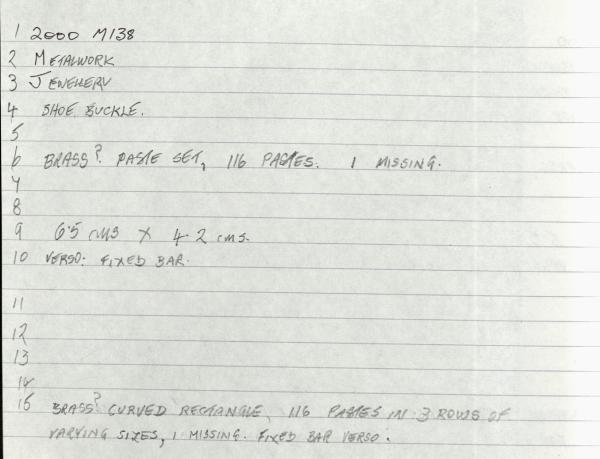 1 2000 M138
2 METALWORK
3 JEWELLERY
4 SHOE BUCKLE.
5
6 BRASS? PASTE SET, 116 PASTES. 1 MISSING.
7
8
9 6.5 cms X 4.2 cms.
10 VERSO: FIXED BAR.
11
12
13
14
15 BRASS? CURVED RECTANGLE, 116 PASTES IN 3 ROWS OF
VARYING SIZES, 1 MISSING. FIXED BAR VERSO.